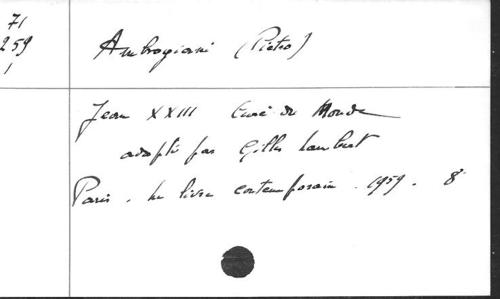 71
259
1
Ambrogiani (Pietro)
Jean XXIII Curé du Monde
adapté par Gilles Lambert
Paris. Le livre contemporain. 1959. 8°